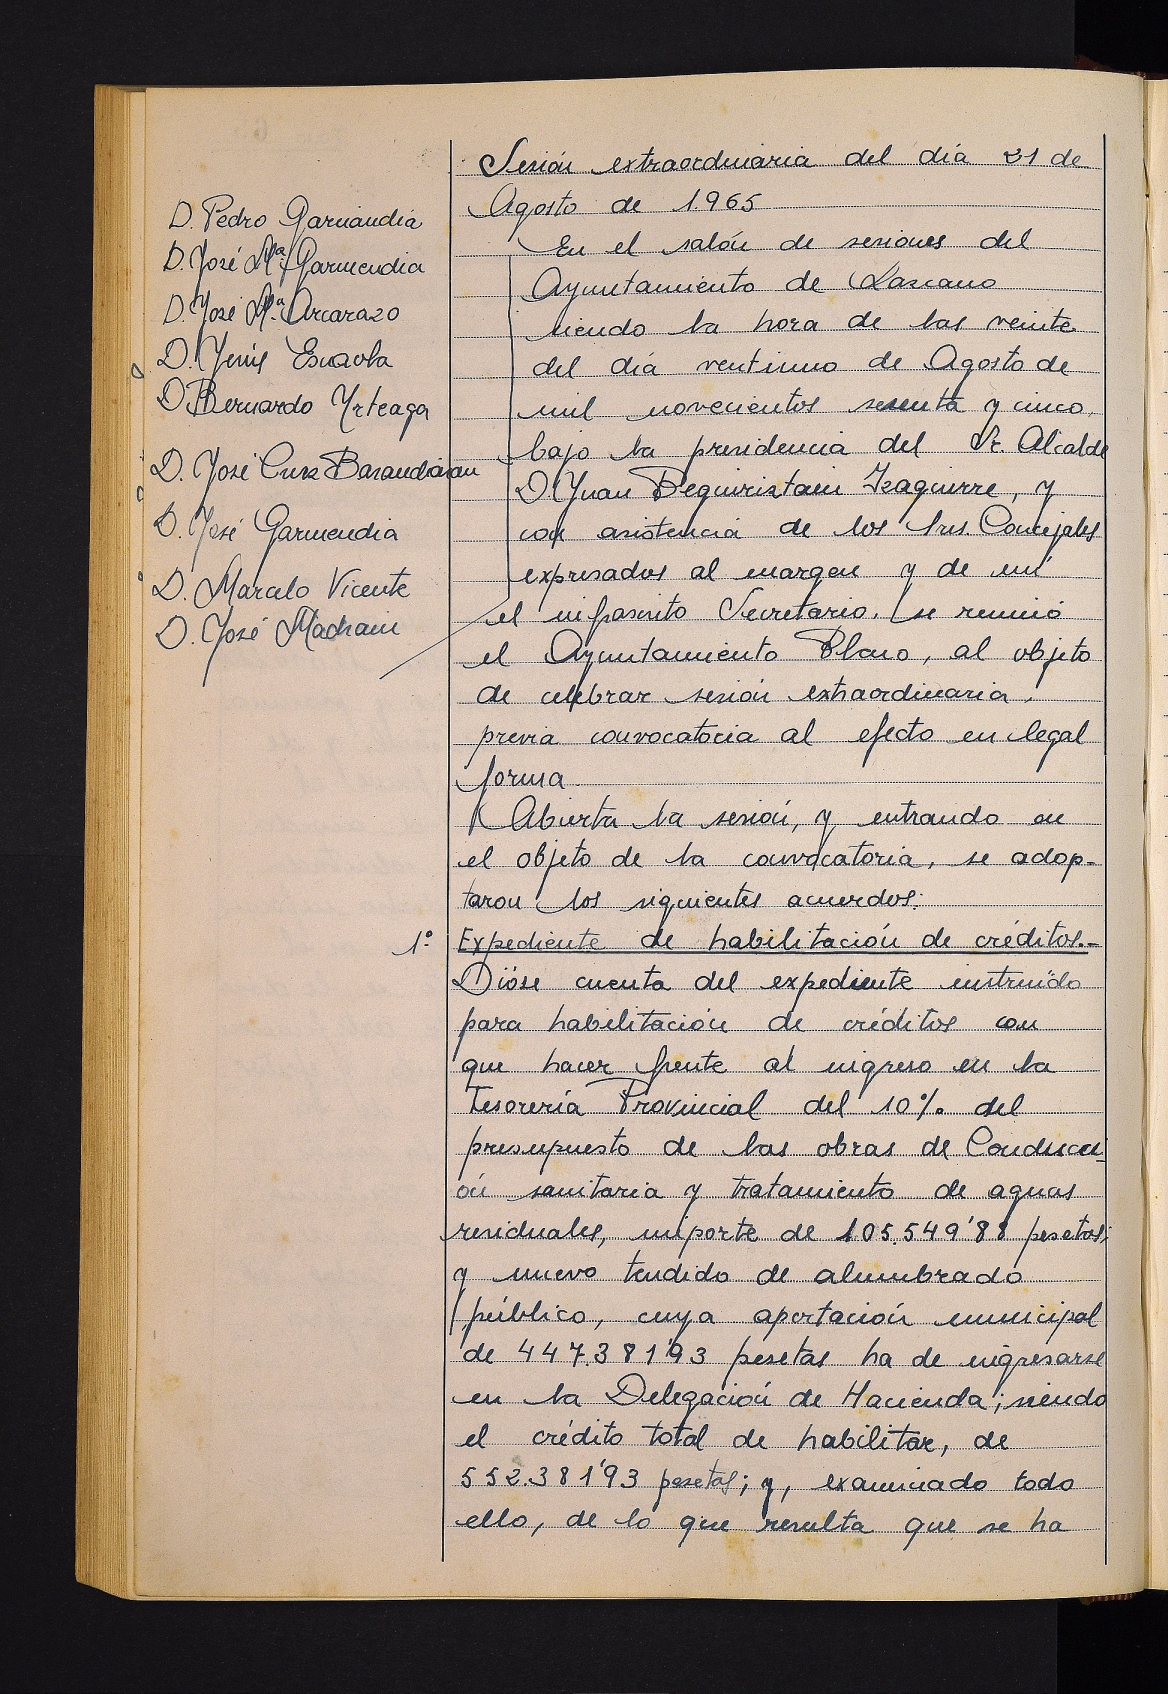 Sesión extraordinaria del día 21 de
Agosto de 1.965
D. Pedro Garmendia
D. José Mª Garmendia
D. José Mª Arcarazo
D. Jesús Escaola
D. Bernardo Yrteaga
D. José Cruz Barandiaran
D. José Garmendia
D. Marcelo Vicente
D. José Madrain
En el salón de sesiones del
Ayuntamiento de Lazcano
siendo la hora de las veinte
del día ventiuno de Agosto de
mil novecientos sesenta y cinco,
bajo la presidencia del Sr. Alcalde
D. Juan Beguiristain Izaguirre, y
con asistencia de los Srs. Concejales
expresados al margen y de mí
el infrascrito Secretario, se reunió
el Ayuntamiento Pleno, al objeto
de celebrar sesión extraordinaria,
previa convocatoria al efecto en legal
forma.
Abierta la sesión, y entrando en
el objeto de la convocatoria, se adop-
taron los siguientes acuerdos:
1º Expediente de habilitación de créditos.-
Dióse cuenta del expediente instruído
para habilitación de créditos con
que hacer frente al ingreso en la
Tesorería Provincial del 10% del
presupuesto de las obras de Conducci-
ón sanitaria y tratamiento de aguas
residuales, importe de 105.549'88 pesetas;
y nuevo tendido de alumbrado
público, cuya aportación municipal
de 447.381'93 pesetas ha de ingresarse
en la Delegación de Hacienda; siendo
el crédito total de habilitar, de
552.381'93 pesetas; y, examinado todo
ello, de lo que resulta que se ha